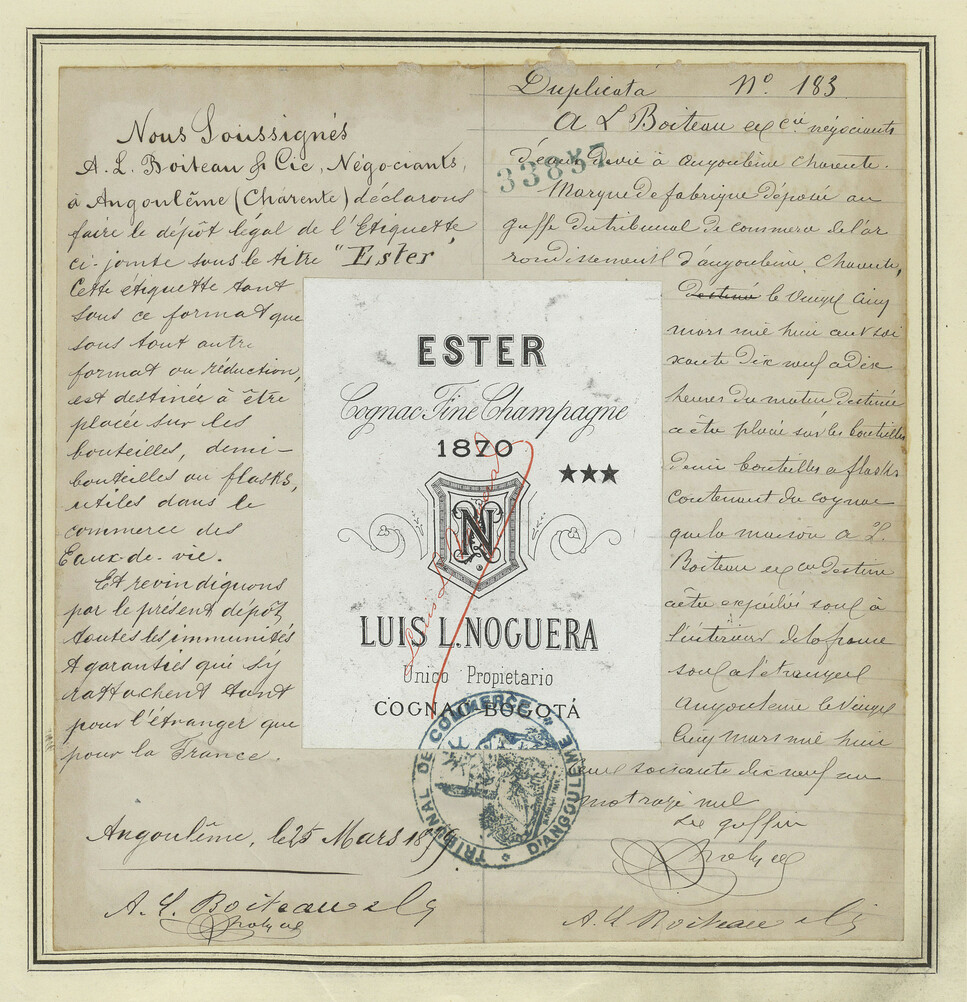 Nous Soussignés
A. L. Boiteau & Cie, Négociants,
à Angoulême (Charente) déclarons
faire le dépôt légal de l'Etiquette
ci-jointe sous le titre "Ester"
Cette étiquette tant
sous ce format que
sous tout autre
format ou réduction,
est destinée à être
placée sur les
bouteilles, demi-
bouteilles ou flasks,
utiles dans le
commerce des
Eaux-de-vie.
Et revindiquons
par le présent dépôt,
toutes les immunités
& garanties qui s'y
rattachent tant
pour l'étranger que
pour la France.
Angoulême, le 25 Mars 1879
A. L. Boiteau & Cie
Duplicata No. 183
A L Boiteau et Cie négociants
d'eaux de vie à angoulême charente.
33857
Marque de fabrique déposée au
greffe du tribunal de commerce de l'ar
rondissement d'angoulême, charente,
destiné le vingt cinq
mars mil huit cent soi
xante dix neuf à dix
heures du matin destinée
a être placée sur les bouteilles
demi bouteilles et flasks
contenant du cognac
que la maison A. L.
Boiteau et cie destine
a être expédié soit à
l'intérieur de la france
soit a l'étranger
angouleme le vingt
cinq mars mil huit
cent soixante dix neuf
Le greffier
A. L. Boiteau & Cie
ESTER
Cognac Fine Champagne
1870
★★★
N
LUIS L. NOGUERA
Unico Propietario
COGNAC-BOGOTÁ
TRIBUNAL DE COMMERCE D'ANGOULEME